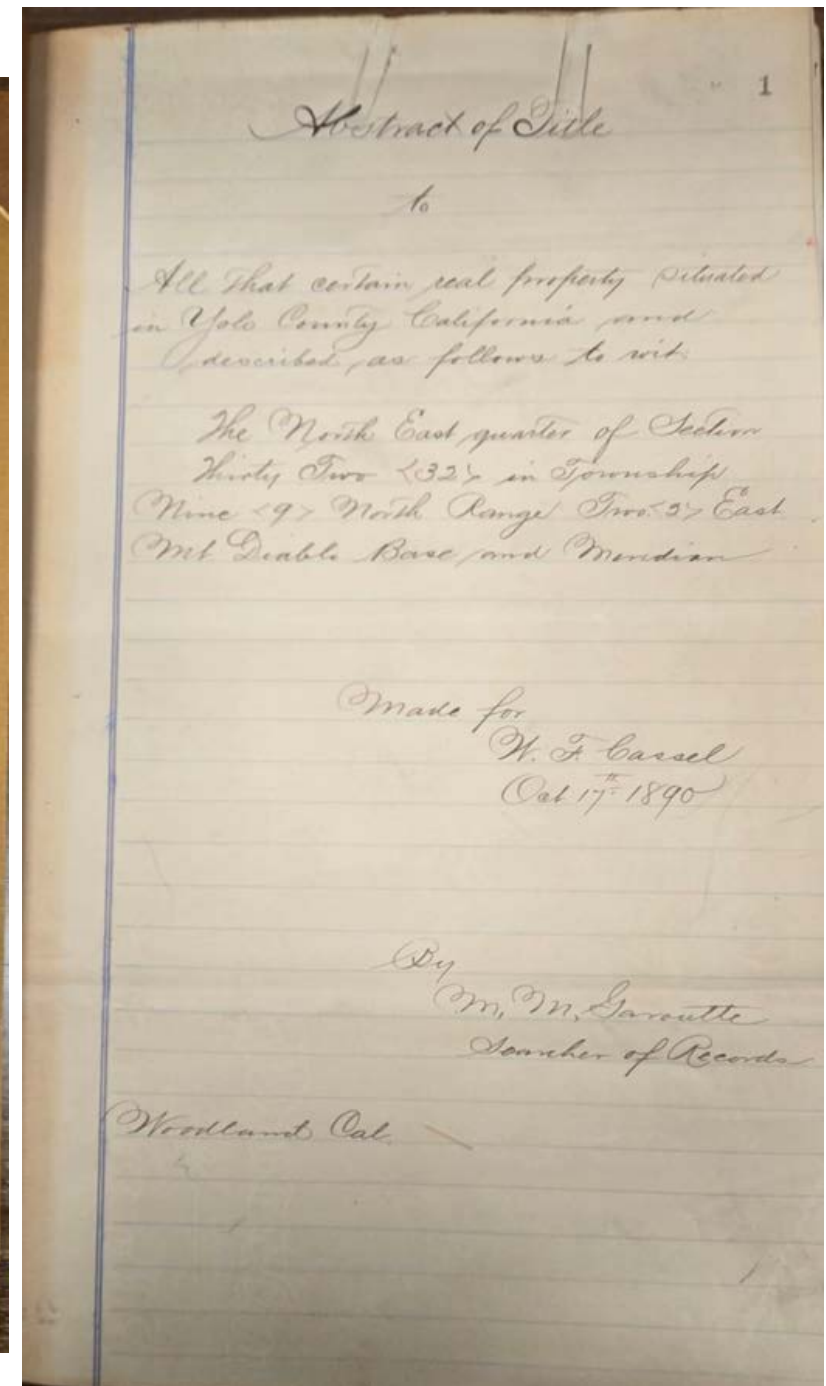 1
Abstract of Title
to
All that certain real property situated
in Yolo County California and
described as follows to wit:
The North East quarter of Section
Thirty Two <32> in Township
Nine <9> North Range Two <2> East
Mt Diablo Base and Meridian
Made for
W. F. Cassel
Oct 17th 1890
By
M. M. Garoutte
Searcher of Records
Woodland Cal.